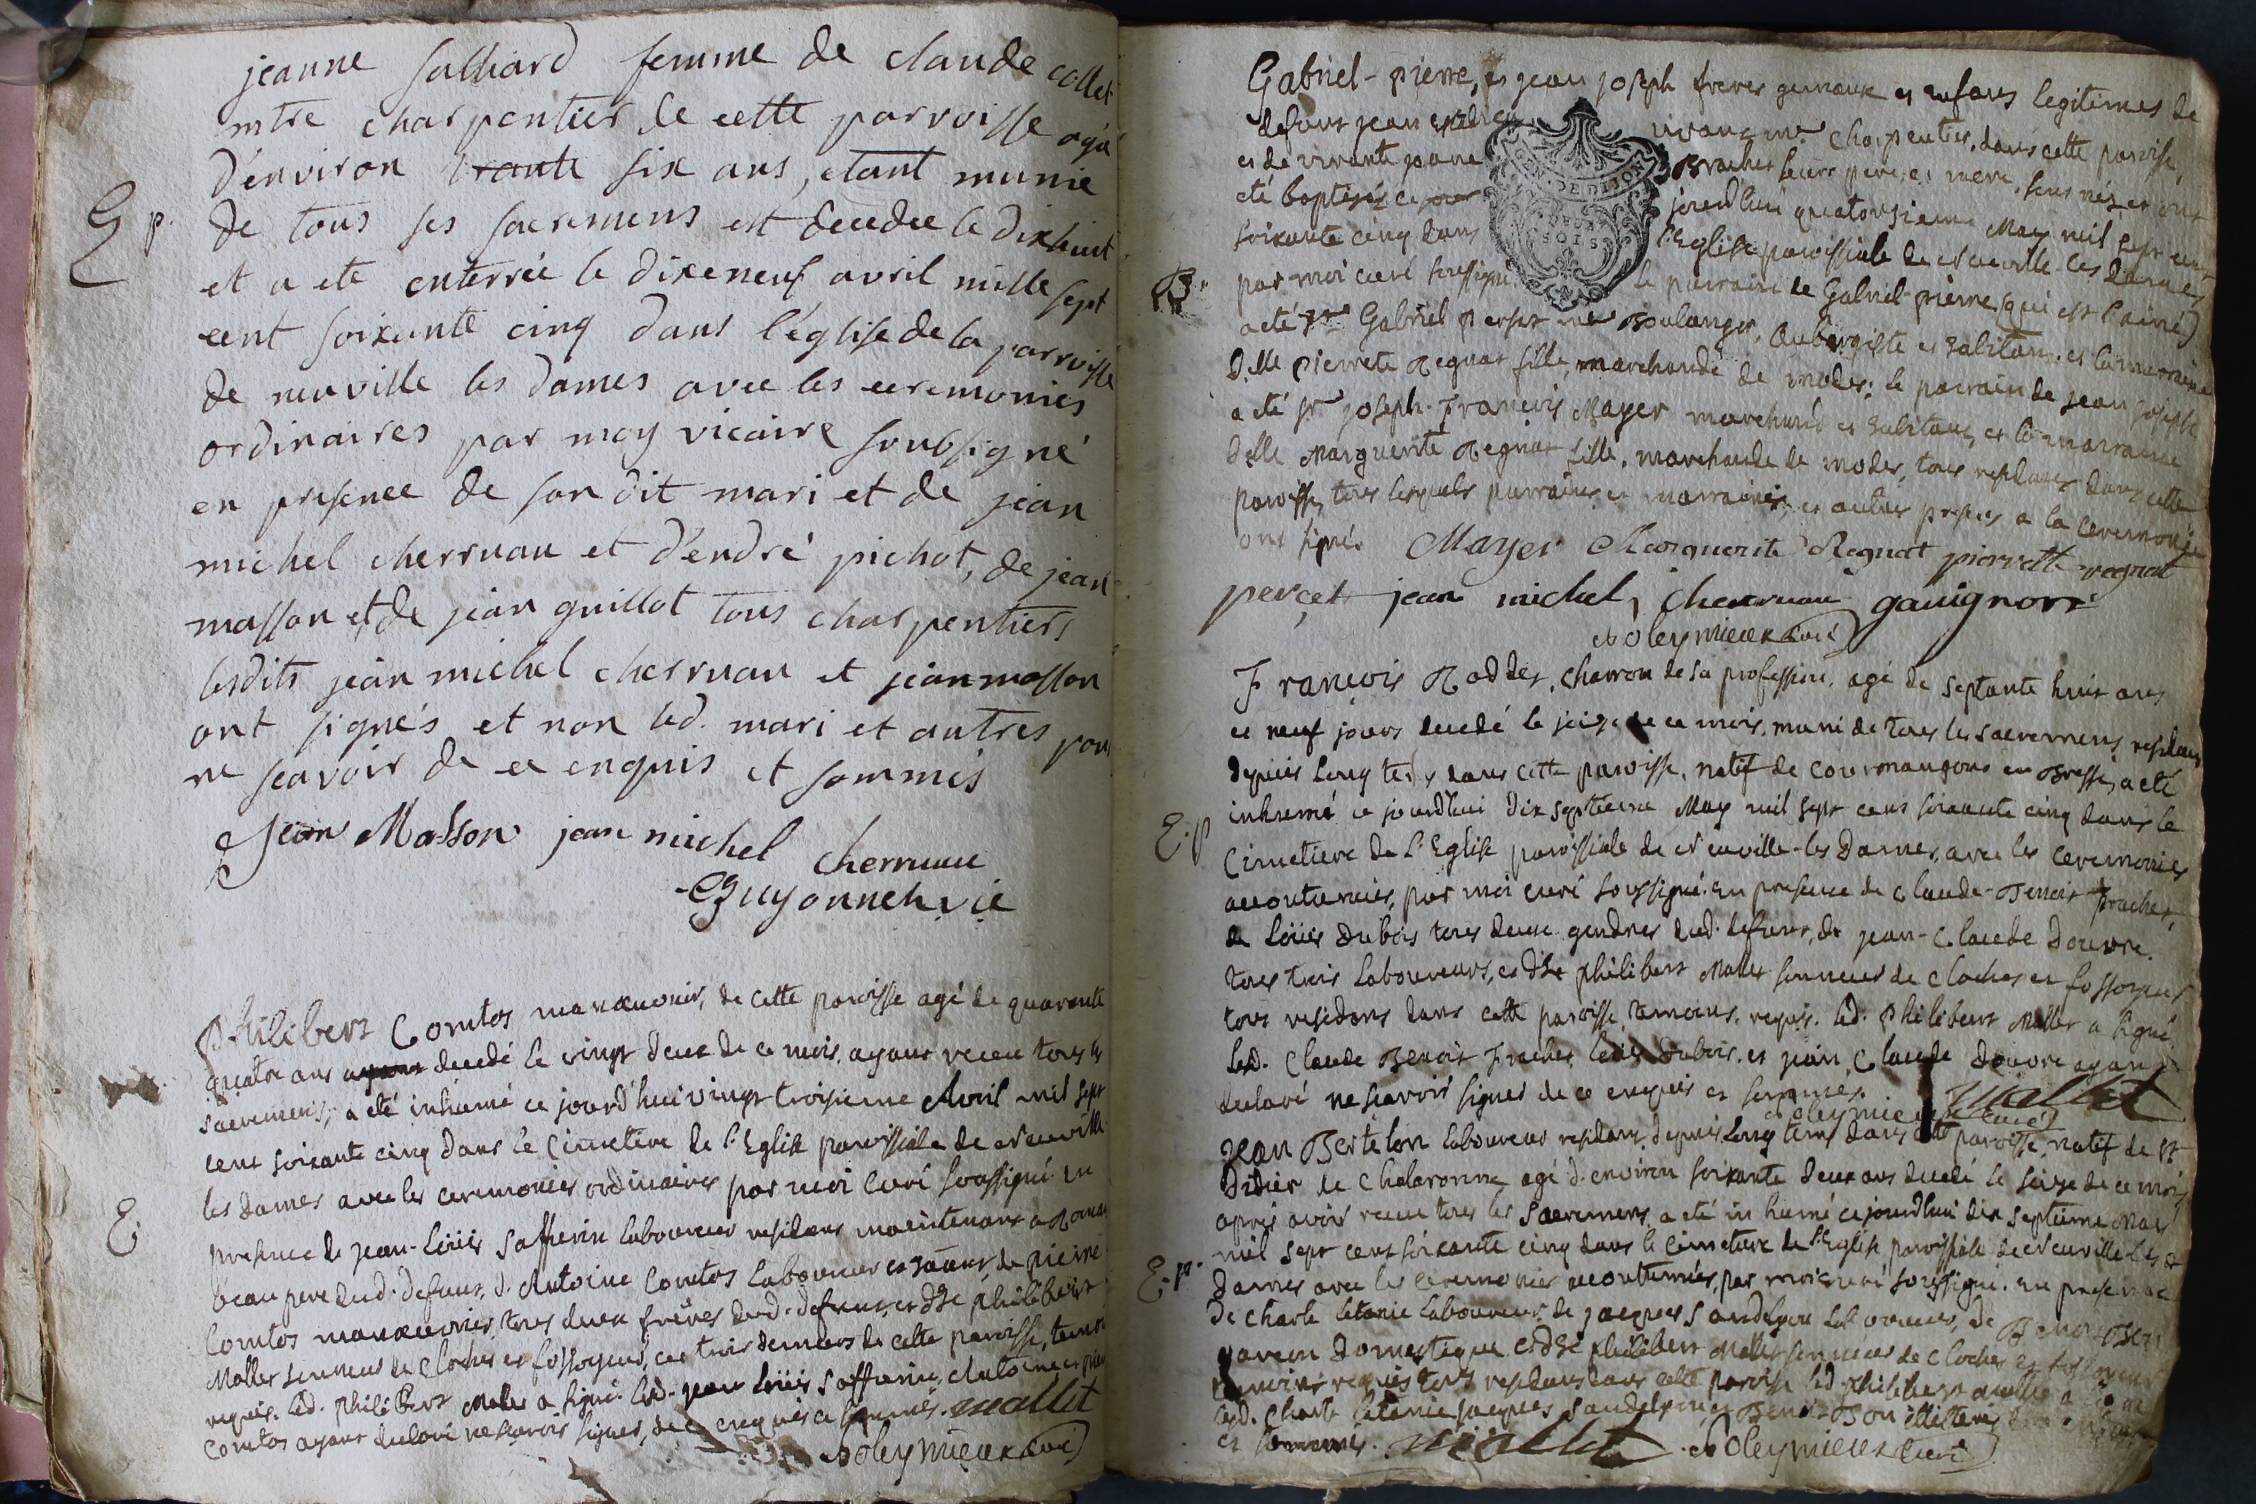 jeanne salliard femme de claude collet
mtre charpentier de cette parroisse agée
d'environ trante six ans, etant munie
E p.
de tous ses sacremens est decedee le dixhuit
et a eté enterrée le dixeneuf avril mille sept
cent soixante cinq dans l'église de la parroisse
de neuville les dames avec les ceremonies
ordinaires par moy vicaire soubsigné
en presence de son dit mari et de jean
michel cherruau et d'endré pichot, de jean
masson et de jean guillot tous charpentiers
lesdits jean michel cherruau et jean masson
ont signés et non led. mari et autres pour
ne scavoir de ce enquis et sommés
Jean Masson jean michel cherruau
Guyonnet vic
Philibert Comtos manœuvrier, de cette paroisse agé de quarante
quatre ans decedé le vingt deux de ce mois, ayant receu tous les
sacremens, a été inhumé ce jourd'hui vingt troisieme Avril mil sept
cent soixante cinq dans le Cimetiere de l'Eglise paroissiale de Neuville
les dames avec les ceremonies ordinaires par moi Curé soussigné en
E.
presence de jean-Loüis Saffierin laboureur residant maintenant a
beau pere dud. defunt, d'Antoine Comtos laboureur et de pierre
Comtos manœuvrier, tous deux frères dud. defunt, et de philibert
Mallet sonneur de Cloches et fossoyeur, ces trois derniers de cette paroisse, temoins
requis. led. philibert Mallet a signé. led. jean Loüis Saffierin, Antoine et pierre
Comtos ayant declaré ne scavoir signer, de ce enquis et sommés. mallet
Noleymieux curé
Gabriel-pierre, et jean joseph freres gemaux et enfans legitimes de
defunt jean vivant mre Charpentier, dans cette paroisse,
et de vivante jeanne Brachet leurs pere, et mere, sont nés et ont
eté baptisés ce jourd'hui quatorsieme May mil sept cent
soixante cinq dans l'Eglise paroissiale de Neuville-les dames
B.
par moi curé soussigné le parrain de Gabriel-pierre (qui est l'ainé)
a eté sr Gabriel perset mre Boulanger, Aubergiste et habitant, et la marraine
Dlle pierrete Regnat fille, marchande de modes; le parrain de jean joseph
a été sr joseph-François Mayer marchand et habitant, et la marraine
Delle Marguerite Regnat fille, marchande de modes, tous residans dans cette
paroisse, tous lesquels parrains, et marraines, et autres presens a la ceremonie
ont signé. Mayer Marguerite Regnat pierrette regnat
perçet jean michel, cherruau gauignon
Noleymieux curé
François Roddet, charron de sa profession, agé de septante huit ans
et neuf jours decedé le seize de ce mois, muni de tous les sacremens residant
depuis long tems dans cette paroisse, natif de Courmangoux en Bresse, a eté
E. p
inhumé ce jourd'hui dix septieme May mil sept cent soixante cinq dans le
Cimetiere de l'Eglise paroissiale de Neuville-les Dames, avec les ceremonies
accoutumées, par moi curé soussigné. en presence de Claude-Benoit frachet,
de Loüis Dubois tous deux gendres dud. defunt, de jean-Claude Douvre.
tous trois laboureurs, et de philibert Mallet sonneur de Cloches et fossoyeur
tous residans dans cette paroisse temoins requis. led. Philibert Mallet a signé.
led. Claude Benoit Frachet, Loüis Dubois, et jean Claude Douvre ayant
declaré ne scavoir signer de ce enquis et sommés. mallet
Noleymieux Curé
jean Bertelon laboureur residant depuis long tems dans cette paroisse, natif de St
Didier de Chalaronne agé d'environ soixante deux ans decedé le seize de ce mois
après avoir receu tous les Sacremens a été inhumé ce jourd'hui dix septieme Mai
mil sept cent soixante cinq dans le Cimetiere de l'Eglise paroissiale de Neuville les
E. p.
Dames avec les ceremonies accoutumées, par moi curé soussigné. en presence
de Charle Létanie laboureur, de jacques laboureur, de Benoit
domestique et de philibert Mallet sonneur de Cloches et fossoyeur
temoins requis tous residans dans cette paroisse led. philibert mallet a signé
led. Charle Létanie jacques et Benoit
et sommés. mallet. Noleymieux curé